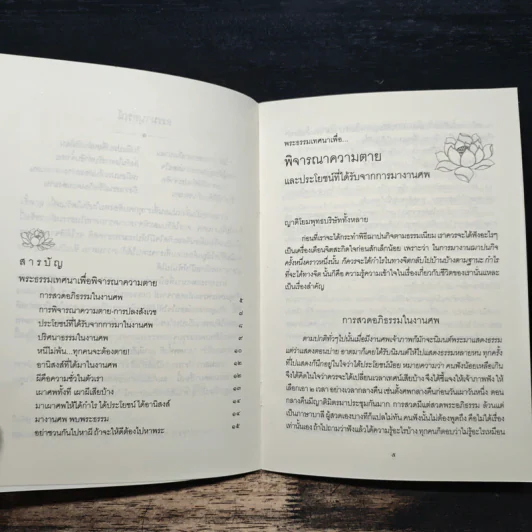 สารบัญ
พระธรรมเทศนาเพื่อพิจารณาความตาย
การสวดอภิธรรมในงานศพ ๕
การพิจารณาความตาย-การปลงสังเวช
ประโยชน์ที่ได้รับจากการมาในงานศพ
ปริศนาธรรมในงานศพ ๙
หนีไม่พ้น...ทุกคนจะต้องตาย! ๑๐
อานิสงส์ที่ได้มาในงานศพ ๑๑
ผีคือความชั่วในตัวเรา ๑๒
เผาศพทั้งที เผาผีเสียบ้าง ๑๓
มาเผาศพให้ได้กำไร ได้ประโยชน์ ได้อานิสงส์ ๑๔
มางานศพ พบพระธรรม ๑๔
อย่าชวนกันไปหาผี ถ้าจะให้ดีต้องไปหาพระ ๑๕
พระธรรมเทศนาเพื่อ...
พิจารณาความตาย
และประโยชน์ที่ได้รับจากการมางานศพ
ญาติโยมพุทธบริษัททั้งหลาย
ก่อนที่เราจะได้กระทำพิธีฌาปนกิจตามธรรมเนียม เราควรจะได้ฟังอะไรๆ
เป็นเครื่องเตือนจิตสะกิดใจก่อนสักเล็กน้อย เพราะว่า ในการมางานฌาปนกิจ
ครั้งหนึ่งคราวหนึ่งนั้น ก็ควรจะได้กำไรในทางจิตกลับไปบ้านบ้างตามฐานะ กำไร
ที่จะได้ทางจิต นั้นก็คือ ความรู้ความเข้าใจในเรื่องเกี่ยวกับชีวิตของเรานั่นแหละ
เป็นเรื่องสำคัญ
การสวดอภิธรรมในงานศพ
ตามปกติทั่วๆไปนั้นเมื่อมีงานศพเจ้าภาพก็มักจะนิมนต์พระมาแสดงธรรม
แต่ว่าแสดงตอนบ่าย อาตมาก็เคยได้รับนิมนต์ให้ไปแสดงธรรมหลายหน ทุกครั้ง
ที่ไปแสดงก็นึกอยู่ในใจว่า ได้ประโยชน์น้อย หมายความว่า คนฟังน้อยเหลือเกิน
จึงได้คิดไปว่าควรจะได้เปลี่ยนเวลาเทศน์เสียบ้าง จึงได้ชี้แจงให้เจ้าภาพฟัง ให้
เลือกเอา ๒ เวลา อย่างเวลากลางคืน เช่น ตั้งศพกลางคืนก่อนวันเผาวันหนึ่ง ตอน
กลางคืนมีญาติมิตรมาประชุมกันมาก การสวดมีแต่สวดพระอภิธรรม ล้วนแต่
เป็นภาษาบาลี ผู้สวดเองบางทีก็แปลไม่ทัน คนฟังนั้นไม่ต้องพูดถึง คือไม่ได้เรื่อง
เท่านั้นเอง ถ้าไปถามว่าฟังแล้วได้ความรู้อะไรบ้าง ทุกคนก็ตอบว่าไม่รู้อะไรเหมือน
๕